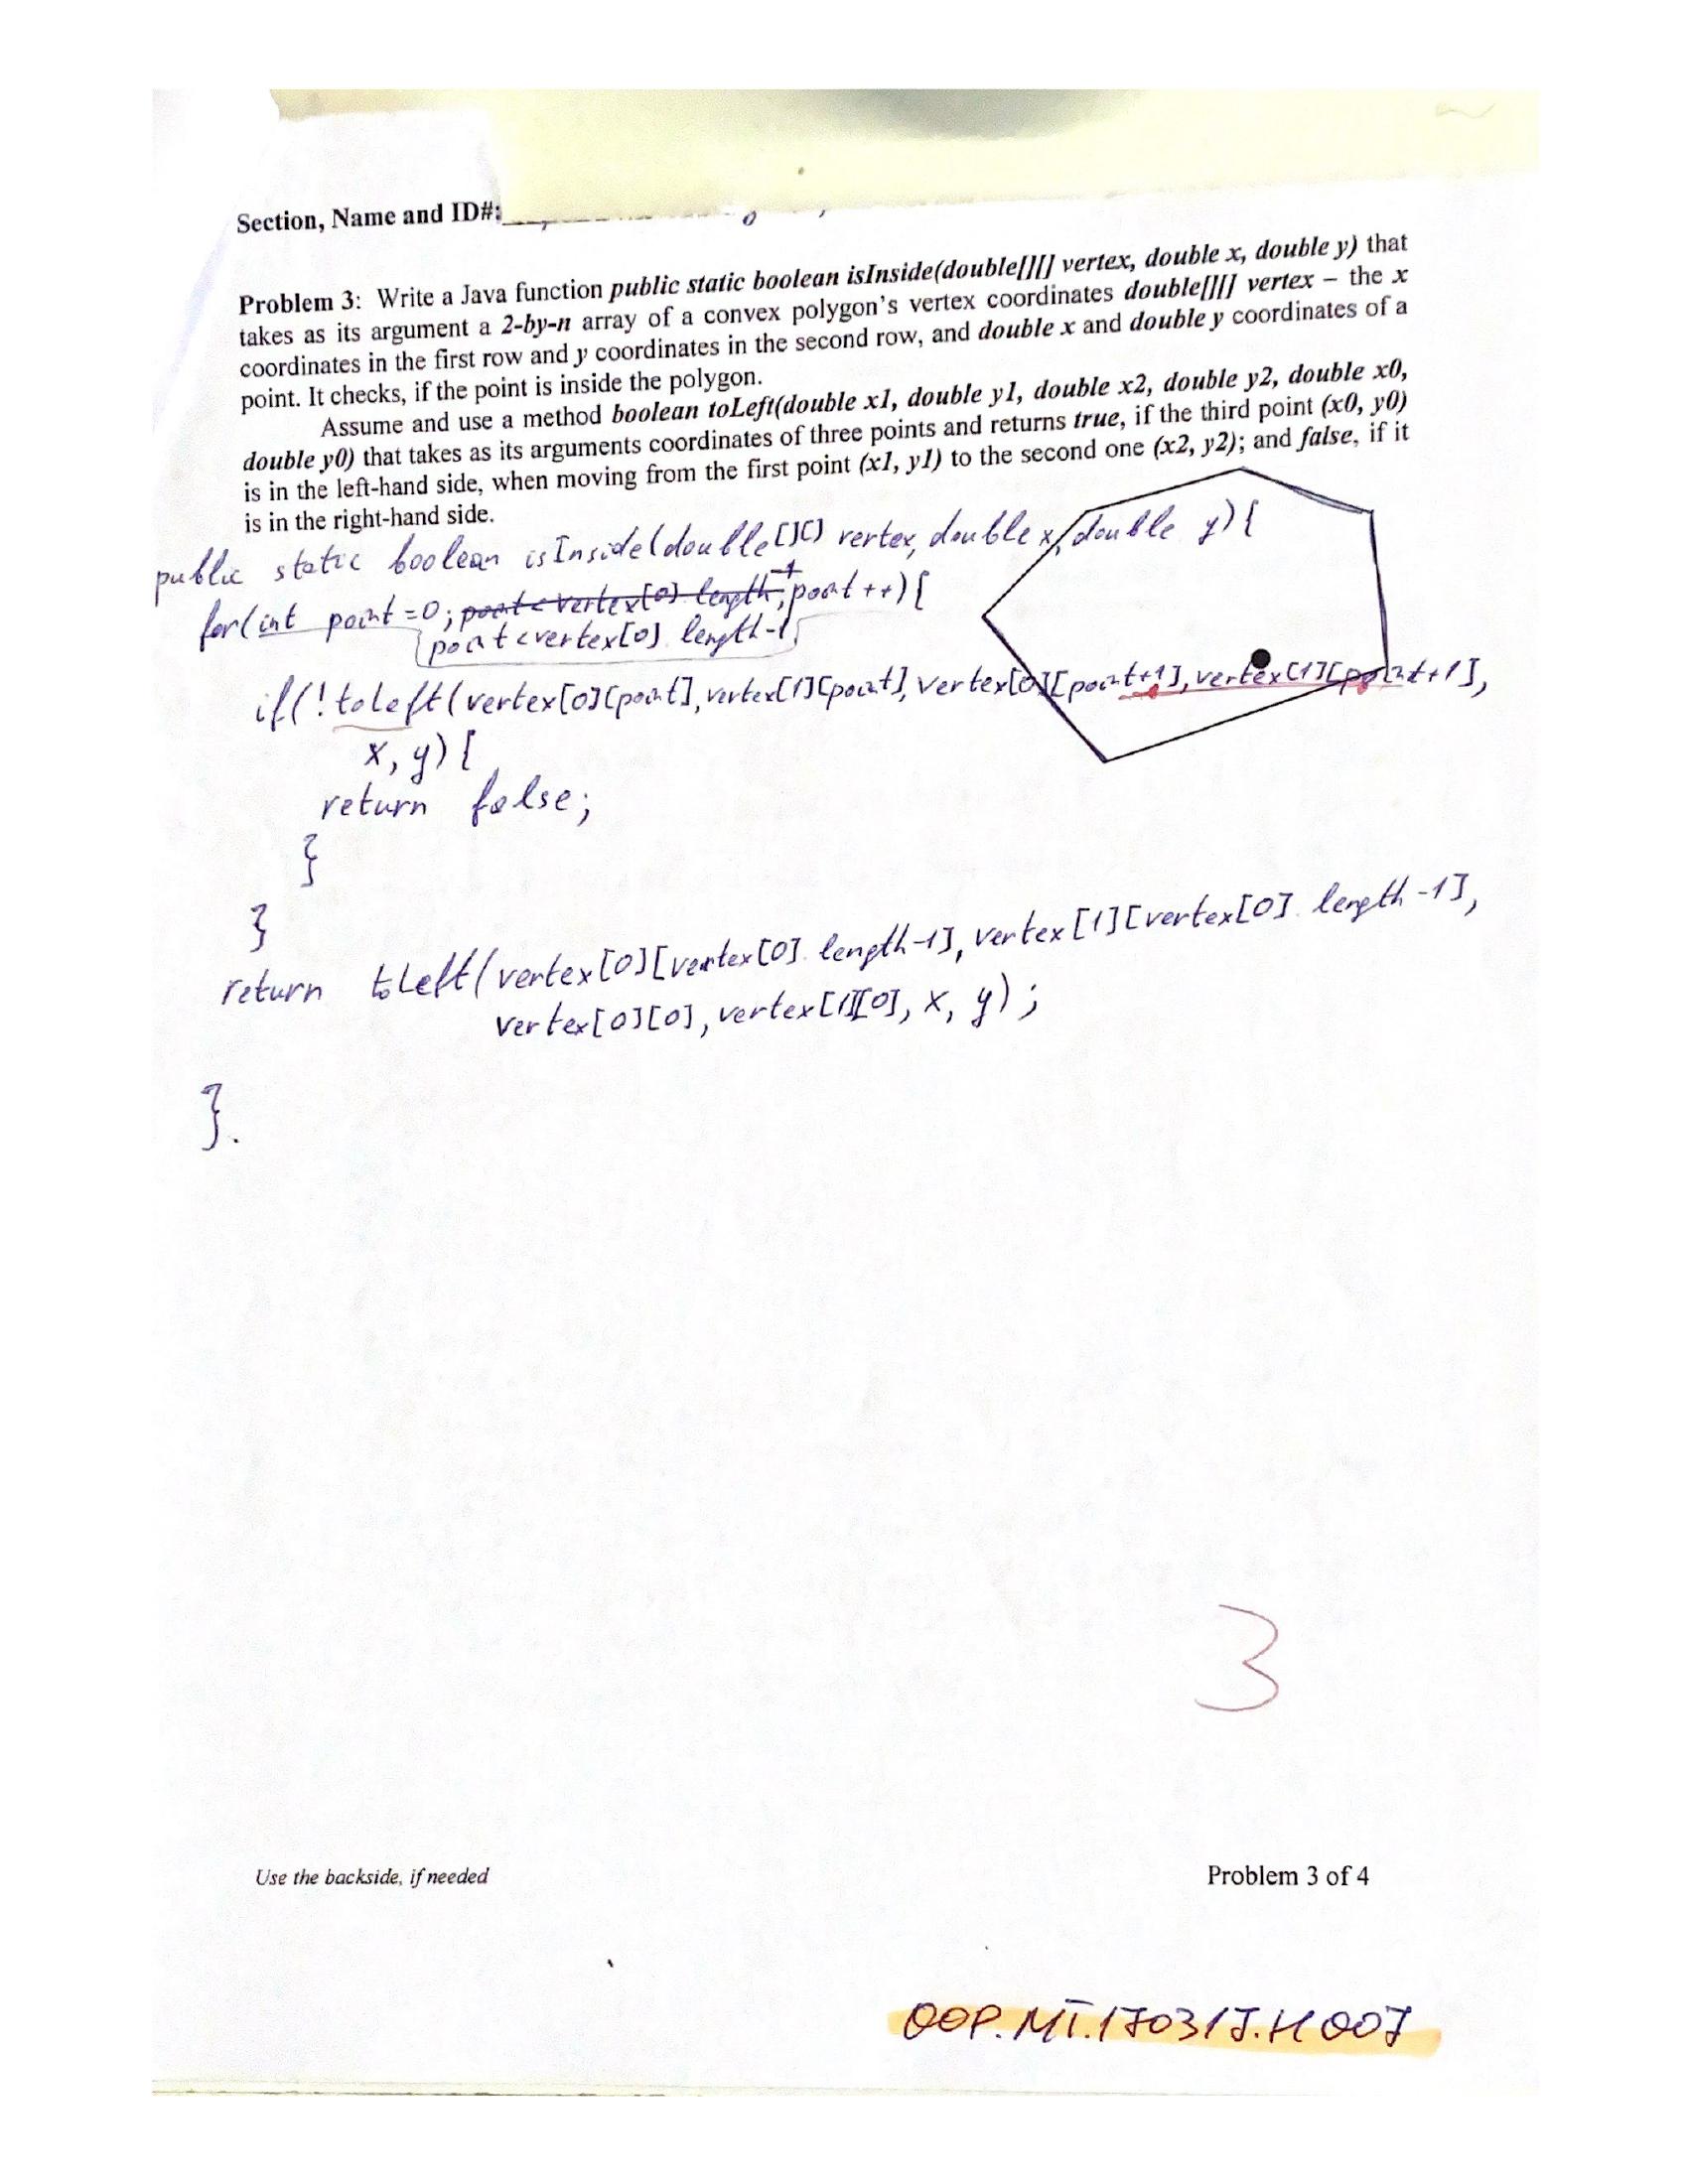 Section, Name and ID#:
Problem 3: Write a Java function public static boolean isInside(double[][] vertex, double x, double y) that
takes as its argument a 2-by-n array of a convex polygon's vertex coordinates double[][] vertex – the x
coordinates in the first row and y coordinates in the second row, and double x and double y coordinates of a
point. It checks, if the point is inside the polygon.
Assume and use a method boolean toLeft(double x1, double y1, double x2, double y2, double x0,
double y0) that takes as its arguments coordinates of three points and returns true, if the third point (x0, y0)
is in the left-hand side, when moving from the first point (x1, y1) to the second one (x2, y2); and false, if it
is in the right-hand side.
public static boolean isInside(double[][] vertex, double x, double y) {
for(int point = 0; point < vertex[0].length-1; point++) {
point < vertex[0].length-1;
if(!toLeft(vertex[0][point], vertex[1][point], vertex[0][point+1], vertex[1][point+1],
x, y) {
return false;
}
}
return toLeft(vertex[0][vertex[0].length-1], vertex[1][vertex[0].length-1],
vertex[0][0], vertex[1][0], x, y);
}.
3
Use the backside, if needed
Problem 3 of 4
OOP.MT.170317.H007